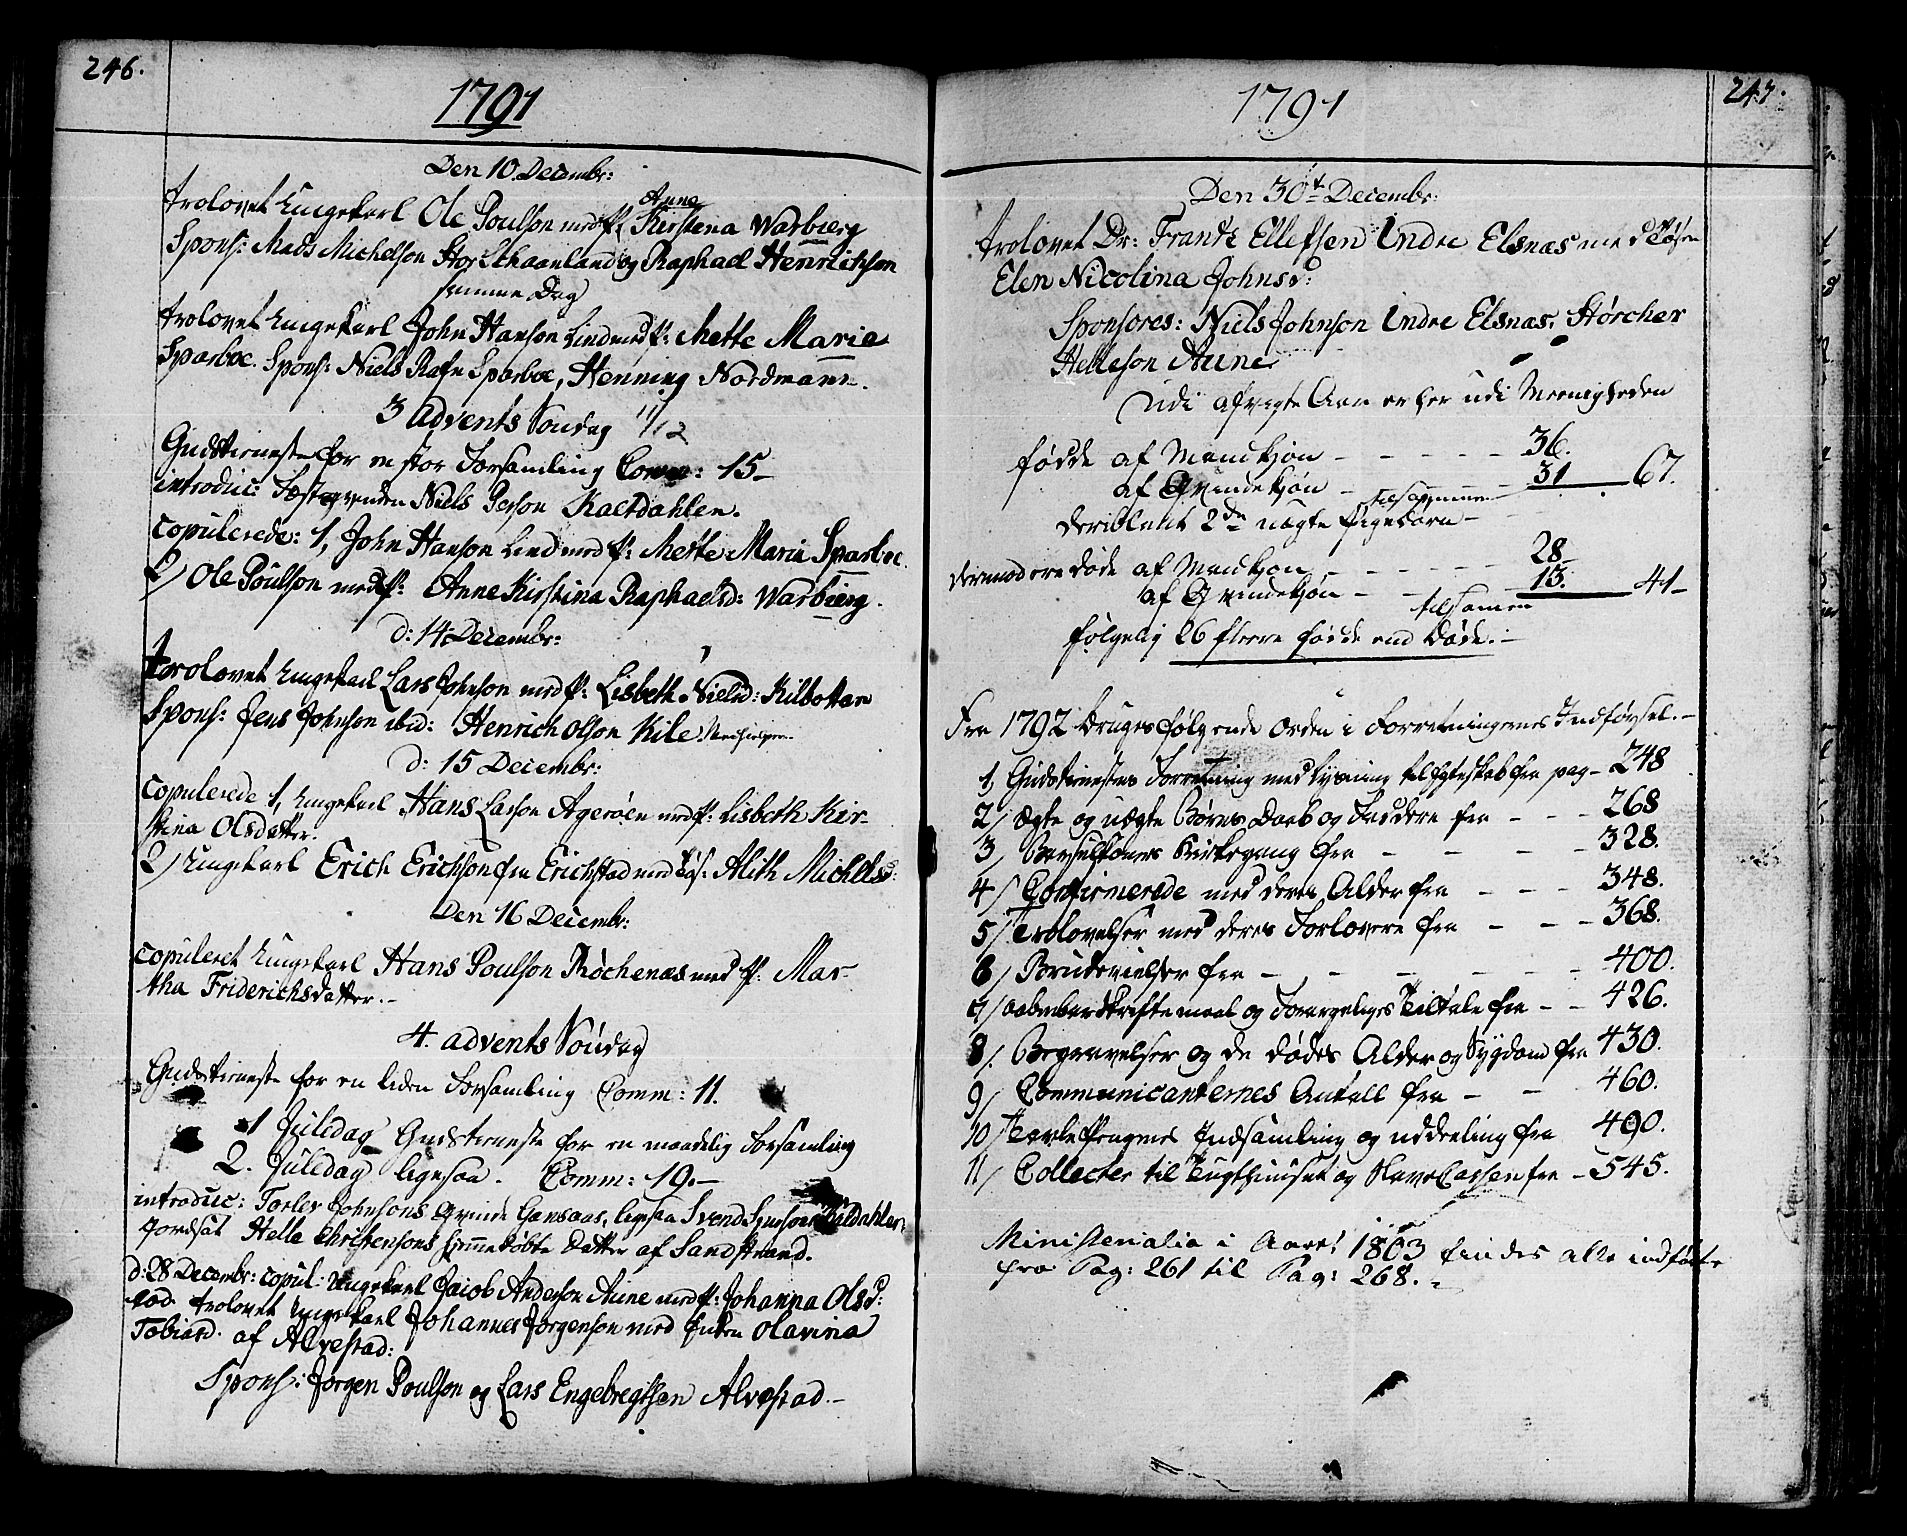 246.
1791
Den 10. Decembr:
trolovet Ungekarl Ole Poulson med P: Anne Kirstena Warbierg
Spons: Mads Michelson Stor Skaanland og Raphael Henrichson
samme Dag
trolovet Ungekarl John Hanson Lind med P: Mette Maria
Sparboe. Spons: Niels Rafn Sparboe, Henning Nordmann.
3 advents Søndag 11/12
Gudstieneste for en stor Forsamling Comm: 15-
introduc: Niels Person Kaltdahlen.
copulerede: 1, John Hanson Lind med P: Mette Maria Sparboe.
2/ Ole Poulson med P: Anne Kirstina Raphaelsd: Warbierg.
d: 14 Decembr:
trolovet Ungekarl Lars Johnson med P: Lisbeth Nielsd: Kilbottan
Spons: Jens Johnson ibid: Henrich Olson Kile
d: 15 Decembr:
copulerede 1, Ungekarl Hans Larson Agerøen med P: Lisbeth Kir-
stina Olsdatter.
2/ Ungekarl Erich Erichson fra Erichstad med Tøs: Alith Michelsd:
Den 16 Decembr:
copuleret Ungekarl Hans Poulson Røchenæs med P: Mar-
tha Friderichsdatter.-
4. advents Søndag
Gudstieneste for en liden Forsamling Comm: 11.
1 Juledag Gudstieneste for en maadelig Forsamling
2. Juledag ligesaa. Comm: 19.-
introduc: Torler Johnsons Qvinde Gausaas, ligesaa Svend
Jordsat Helle Christensons hiemmedøbte Datter af Sandstrand.
d: 28 Decembr: copul: Ungekarl Jacob Anderson Aune med P: Johanna Olsd:
eod. trolovet Ungekarl Johannes Jørgenson med Enken Olavina
Tobiasd. af Alvestad:
Spons: Jørgen Poulson og Lars Engebregtsen Alvestad.-
247.
1791
Den 30t Decembr:
trolovet Dr: Frantz Ellefsen Indre Elsnæs med Tøsen
Elen Nicolina Johnsd:
Sponsores: Niels Johnson Indre Elsnæs, Størcher
Helleson Aune
Udi afvigte Aar er her udi Meenigheden
fødde af Mandkjøn - - - - - 36.
af Qvindekjøn - - tilsammen 31 67.
deriblant 2de uægte Pigebørn -
derimod ere døde af Mandkjøn - - - - 28
af Qvindekjøn - - tilsamen 13. 41-
følgelig 26 fleere fødde end døde.-
Fra 1792 bruges følgende Orden i Forretningernes Indførsel.-
1, Gudstienestes Forretning med Lysning til Egteskab fra pag- 248
2/ Ægte og uægte Børns Daab og Faddere fra - - - 268
3/ Barselkoners Kirkegang fra - - - - 328.
4/ Confirmerede med deres Alder fra - - - 348.
5/ Trolovelser med deres Forlovere fra - - - 368.
6/ Brudevielser fra - - - - - - 400.
7/ aabenbar Skriftemaal og Forargeliges Tiltale fra - - 426.
8/. Begravelser og de dødes Alder og Sygdom fra 430.
9/ Communicanternes Antall fra - - 460.
10/ Tavle Pengenes Indsamling og uddeeling fra 490.
11/ Collecter til Tugthuuset og Slave Cassen fra - 545.
Ministerialia i Aaret 1803 findes alle indførte
fra Pag: 261 til Pag: 268.-